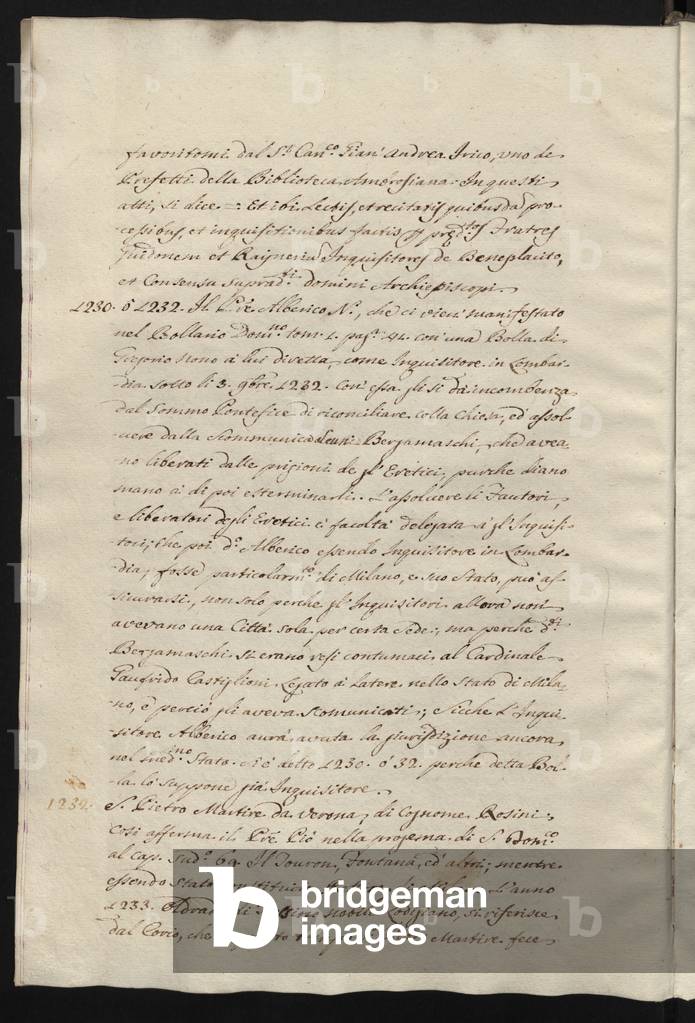 favoritomi dal S.r Can.co Gian Andrea Irico, uno de
Prefetti della Biblioteca Ambrosiana. In questi
atti, si dice = Et ibi Lectis, et recitatis quibusdã pro-
cessibus, et inquisitionibus factis p prędtos Fratres
Guidonem et Raynerium Inquisitores de Beneplacito,
et Consensu suprad.ti domini Archiepiscopi.
1230. ó 1232. Il Pre Alberico N., che ci vien manifestato
nel Bollario Dom.no tom. 1. pag. 41. con una Bolla di
Gregorio Nono à lui diretta, come Inquisitore in Lombar-
dia sotto li 3. gbre 1232. Con essa gli si dà incombenza
dal Sommo Pontefice di riconciliare colla Chiesa, ed assol-
vere dalla Scommunica alcuni Bergamaschi, che avea-
no liberati dalle prigioni de gl' Eretici, purche diano
mano à di poi esterminarli. L'assolvere li Fautori,
e liberatori degli Eretici è facoltà delegata à gl' Inquisi-
tori; Che poi d.o Alberico essendo Inquisitore in Lombar-
dia, fosse particolarm.te di Milano, e suo Stato, può as-
sicurarsi, non solo perche gl' Inquisitori allora non
avevano una Città sola per certa Sede, ma perche d.ti
Bergamaschi si erano resi contumaci al Cardinale
Gaufrido Castiglioni Legato à Latere nello Stato di Mila-
no, e perciò gli aveva Scomunicati; e Sicche L'Inqui-
sitore Alberico avrà avuta la giurisdizione ancora
nel med.mo Stato. Si è detto 1230. ó 32. perche detta Bol-
la lo suppone già Inquisitore.
1232. S. Pietro Martire da Verona, di Cognome Rosini,
Così afferma il Pre Piò nella progenia di S. Dom.co
al Cap. Sud.o 69. Il Touron, Fontana, ed altri; mentre
essendo Stato L'anno
1233. nobile Lodigiano, si riferisce
dal Corio, che Martire fece
bridgeman
images